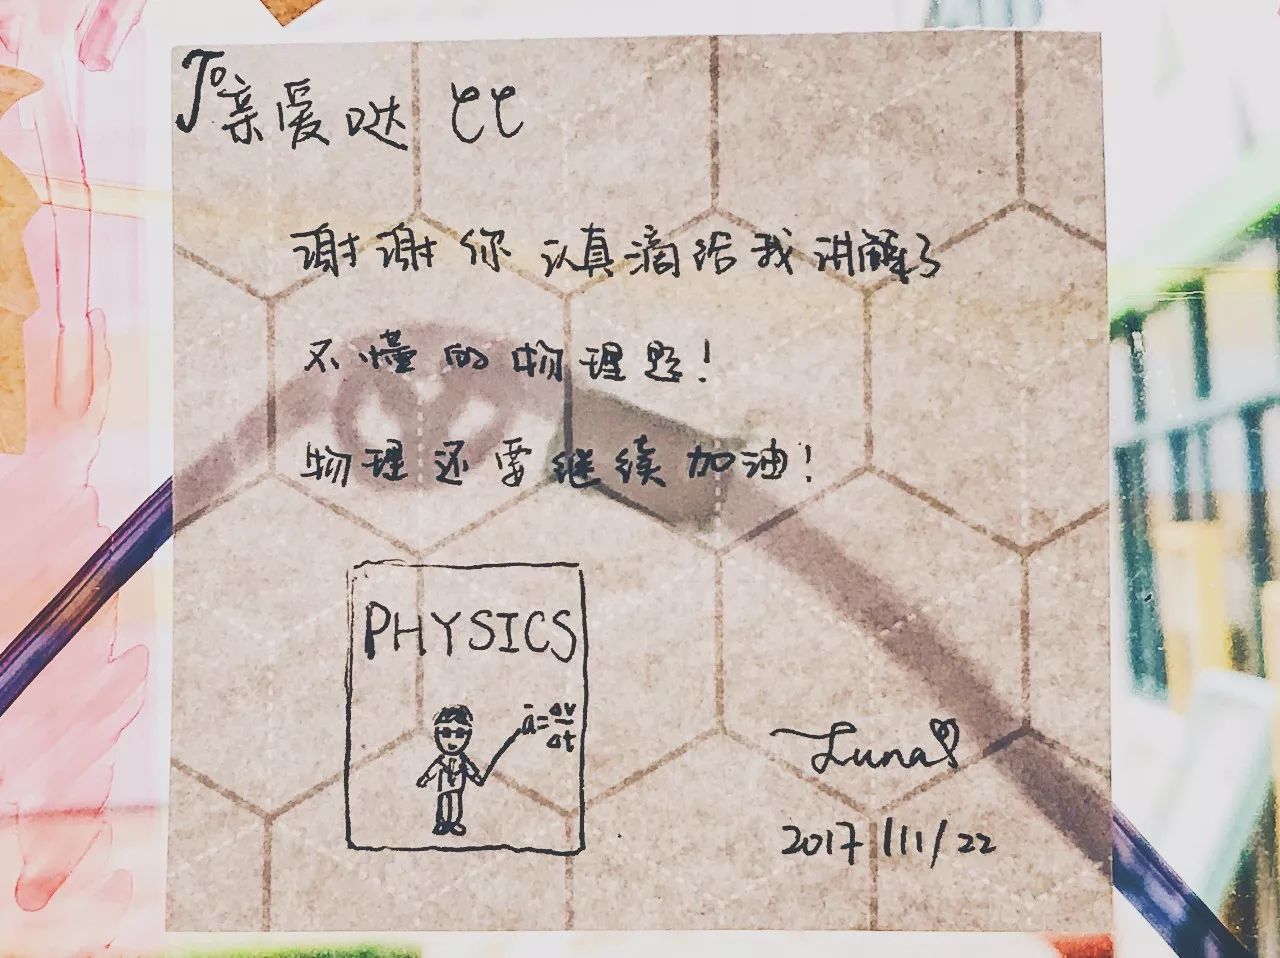 To 亲爱哒
谢谢你认真滴给我讲解了
不懂的物理题！
物理还要继续加油！
PHYSICS
a=Δv/Δt
Luna
2017/11/22